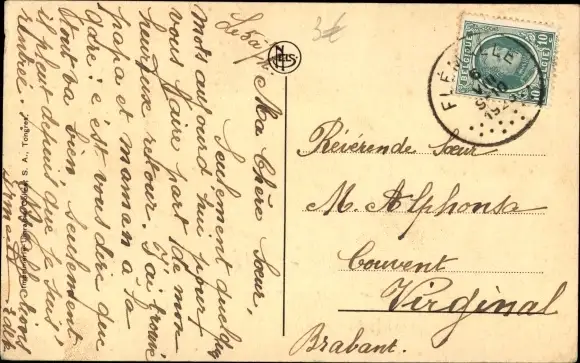 Le 5 a
Ma Chère Soeur,
Seulement quelques
mots aujourd'hui pour
vous faire part de mon
heureux retour. J'ai trouvé
papa et maman à la
gare: c'est vous dire que
tout va bien seulement
il pleut depuis que je suis
rentrée. Affections
3€
NELS
BELGIQUE
10 10
FLE
1925
Révérende Soeur
M. Alphonse
Couvent
Virginal
Brabant.